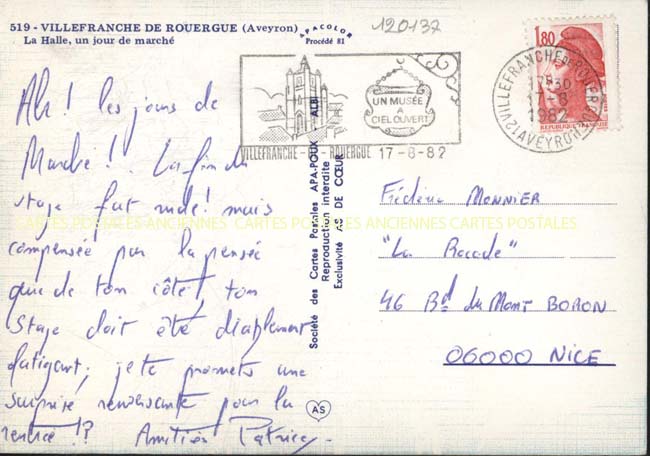 519 - VILLEFRANCHE DE ROUERGUE (Aveyron)
La Halle, un jour de marché
APACOLOR
Procédé 81
120137
Ah! les jours de
Marché!. La fin du
stage fut rude! mais
compensée par la pensée
que de ton côté, ton
stage doit être diablement
fatigant; je te promets une
surprise renversante pour la
rentrée!? Amitiés Patrick
Société des Cartes Postales APA-POUX - ALBI
Reproduction interdite
Exclusivité AS DE CŒUR
AS
UN MUSÉE
A
CIEL OUVERT
VILLEFRANCHE-DE-ROUERGUE 17-8-82
VILLEFRANCHE DE ROUERGUE
17H30
17-8
1982
AVEYRON
1,80
REPUBLIQUE FRANÇAISE
Frédéric MONNIER
"La Rocade"
46 Bd du Mont BORON
06000 NICE
CARTES POSTALES ANCIENNES CARTES POSTALES ANCIENNES CARTES POSTALES